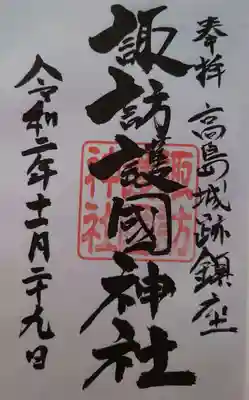 奉拝 高島城跡鎮座
諏訪護國神社
諏訪護國神社
令和二年十一月二十九日